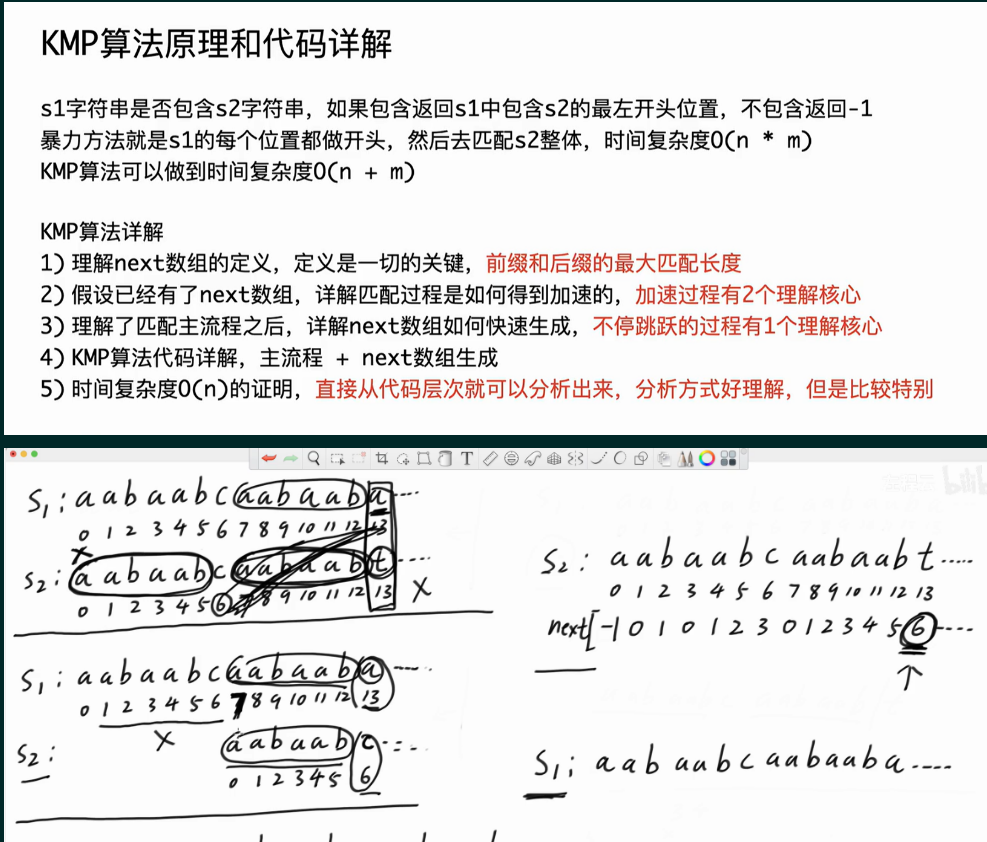 KMP算法原理和代码详解
s1字符串是否包含s2字符串，如果包含返回s1中包含s2的最左开头位置，不包含返回-1
暴力方法就是s1的每个位置都做开头，然后去匹配s2整体，时间复杂度O(n * m)
KMP算法可以做到时间复杂度O(n + m)
KMP算法详解
1) 理解next数组的定义，定义是一切的关键，前缀和后缀的最大匹配长度
2) 假设已经有了next数组，详解匹配过程是如何得到加速的，加速过程有2个理解核心
3) 理解了匹配主流程之后，详解next数组如何快速生成，不停跳跃的过程有1个理解核心
4) KMP算法代码详解，主流程 + next数组生成
5) 时间复杂度O(n)的证明，直接从代码层次就可以分析出来，分析方式好理解，但是比较特别
S1: a a b a a b c a a b a a b a ...
0 1 2 3 4 5 6 7 8 9 10 11 12 13
X
S2: a a b a a b c a a b a a b t ...
0 1 2 3 4 5 6 7 8 9 10 11 12 13 X
S1: a a b a a b c a a b a a b a ...
0 1 2 3 4 5 6 7 8 9 10 11 12 13
X
S2: a a b a a b c ...
0 1 2 3 4 5 6
S2: a a b a a b c a a b a a b t ....
0 1 2 3 4 5 6 7 8 9 10 11 12 13
next[ -1 0 1 0 1 2 3 0 1 2 3 4 5 6 ....
S1: a a b a a b c a a b a a b a ....